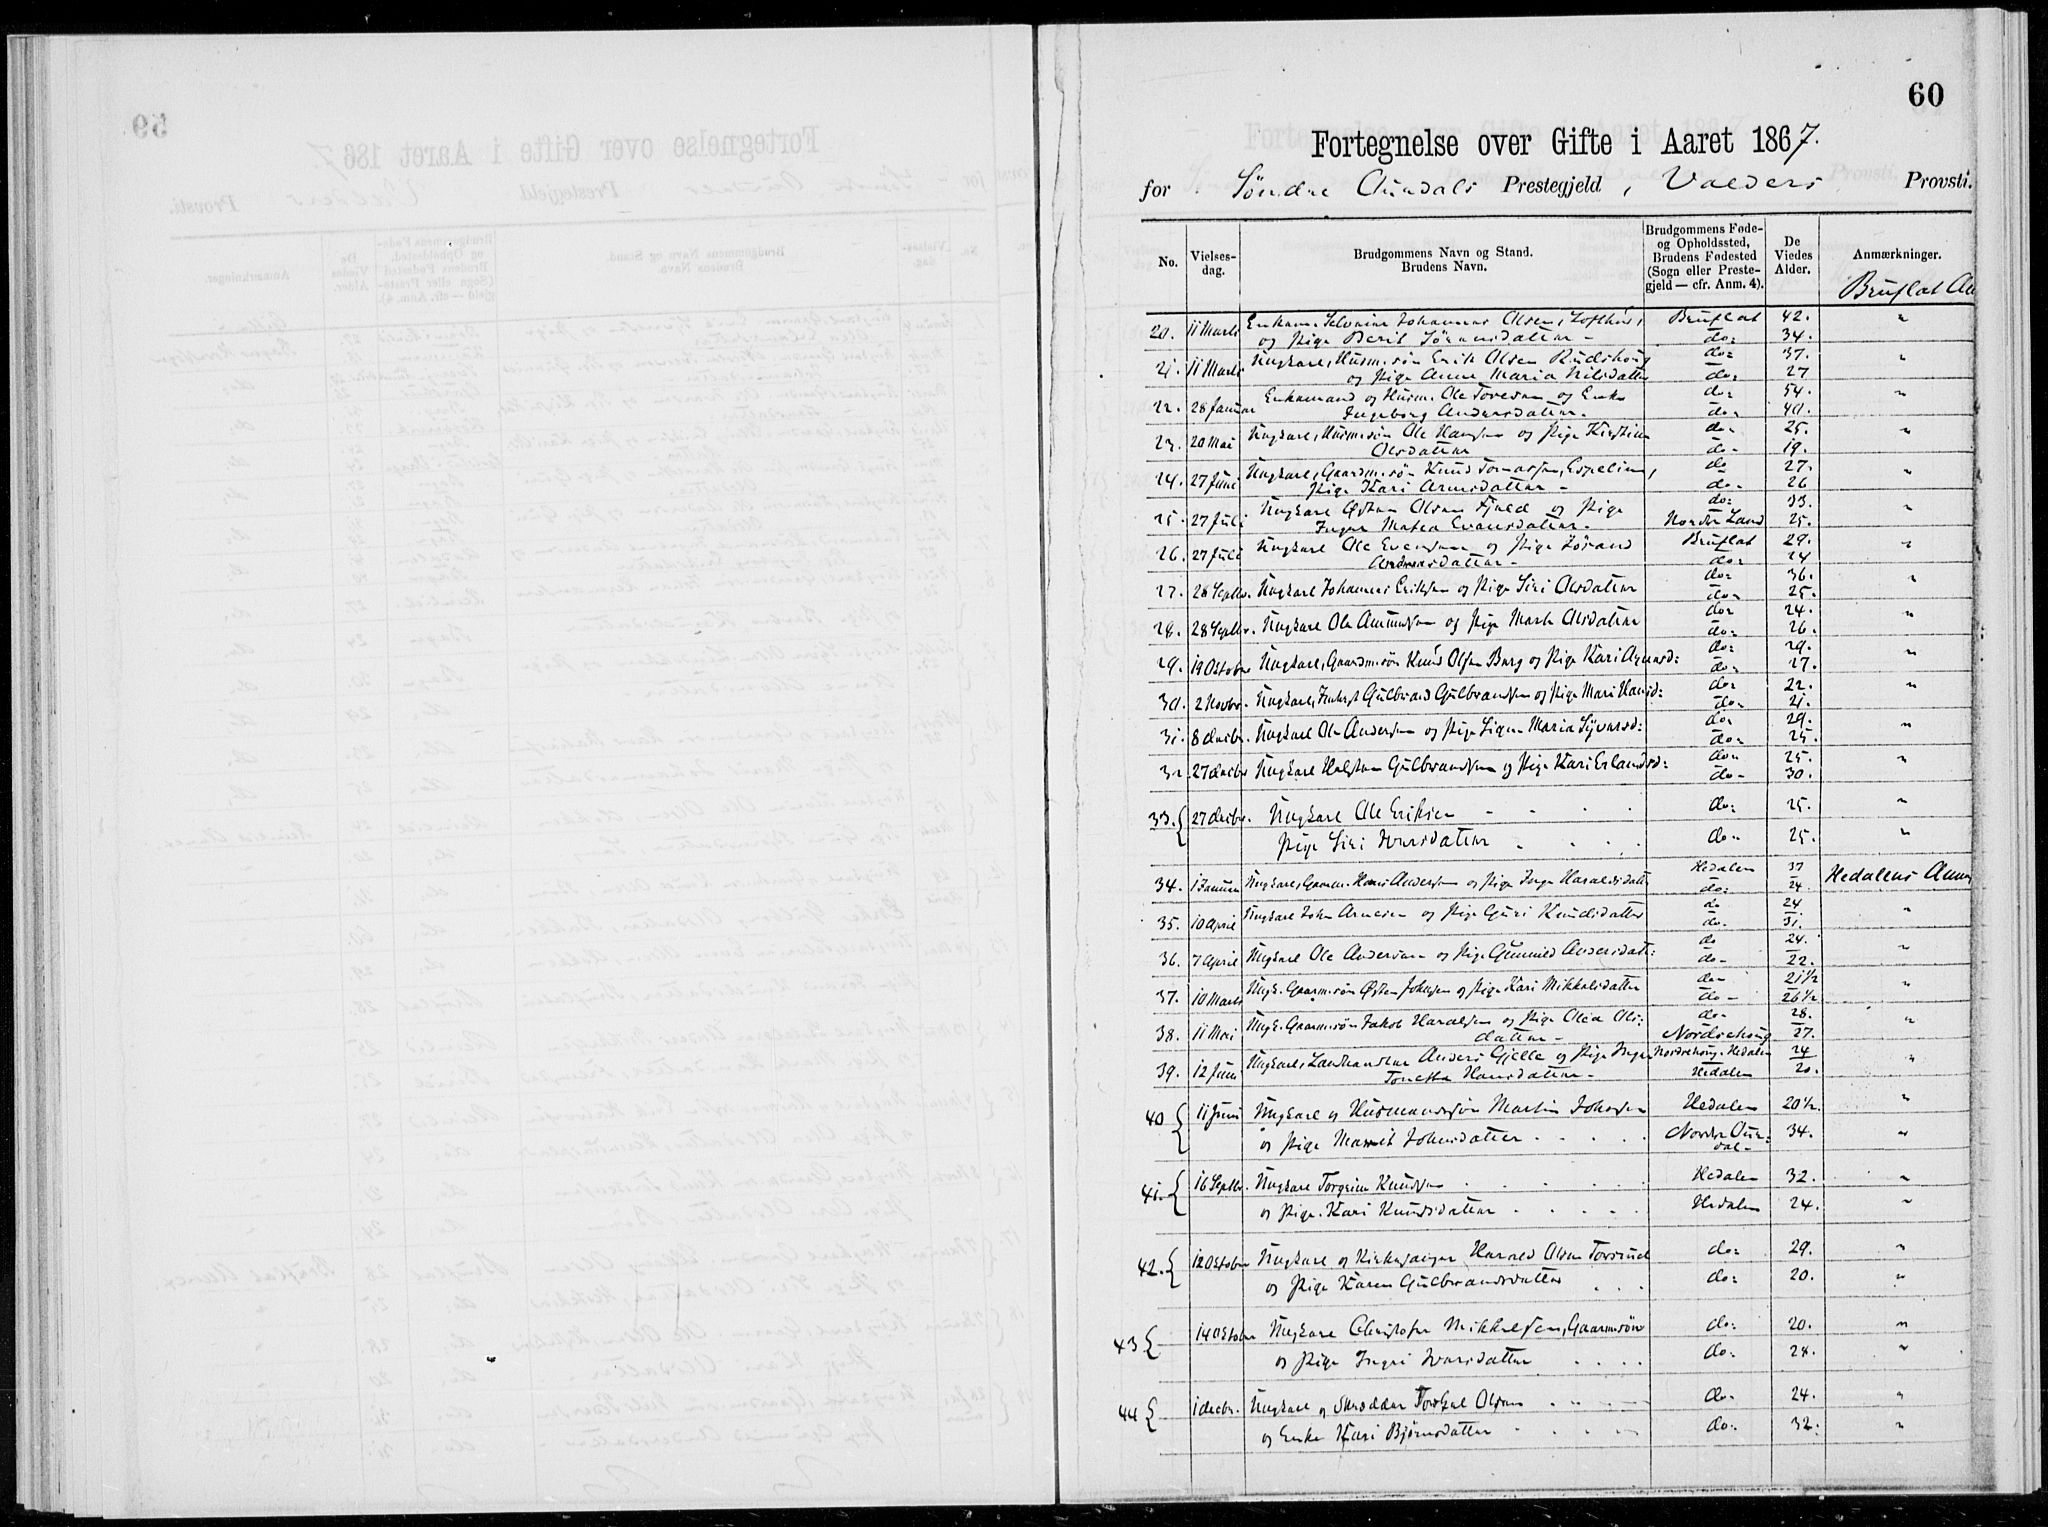 60
Fortegnelse over Gifte i Aaret 1867.
for Søndre Aurdals Prestegjeld, Valders Provsti.
No. Vielses-dag. Brudgommens Navn og Stand. Brudens Navn. Brudgommens Føde- og Opholdssted, Brudens Fødested (Sogn eller Preste-gjeld — cfr. Anm. 4). De Viedes Alder. Anmærkninger.
Bruflat An
20. 11 Marts Enkem. Selveier Johannes Olsen, Bruflat 42. "
og Pige Berit Jøransdatter - do: 34.
21. 11 Marts Ungkarl, Husm.søn Erik Olsen Rudshoug do: 37. "
og Pige Anne Maria Nilsdatter do: 27
22. 28 Januar Enkemand og Husm. Ole Toresen og Enke do: 54. "
Ingeborg Andersdatter. do: 40.
23. 20 Mai Ungkarl, Husm.søn Ole Hansen og Pige Kirstine do: 25. "
Olsdatter do- 19.
24. 27 Juni Ungkarl, Gaardm.søn Knud Tomassen, Espelien, do 27. "
Pige Kari Arnesdatter - do- 26
25. 27 Juli Ungkarl Østen Olsen Fjeld og Pige do: 33. "
Inger Mathea Evensdatter. Nordre Land 25.
26. 27 Juli Ungkarl Ole Evensen og Pige Jørand Bruflat 29. "
Andreasdatter - do: 24
27. 28 Septbr. Ungkarl Johannes Eriksen og Pige Siri Olsdatter do: 36. "
do- 25.
28. 28 Septbr. Ungkarl Ole Amundsen og Pige Marte Olsdatter do: 24. "
do: 26.
29. 19 October Ungkarl, Gaardm.søn Knud Olsen Berg og Pige Kari do: 29. "
do: 27.
30. 2 Novbr. Ungkarl, Gulbrand Gulbrandsen og Pige Mari Hansd: do: 22. "
do- 21.
31. 8 decbr. Ungkarl Ole Andersen og Pige Signe Maria Syversd: do: 29. "
do: 25.
32. 27 decbr Ungkarl Halsten Gulbrandsen og Pige Kari Erlandsd: do: 25. "
do- 30.
33. { 27 decbr. Ungkarl Ole Eriksen - . . . do: 25. "
Pige Siri Iversdatter . . . . do: 25. "
34. 1 Januar Ungkarl, Gaarm. Hans Andersen og Pige Inga Haraldsdatter Hedalen 37 Hedalens Annex
do: 24.
35. 10 April Ungkarl John Arnesen og Pige Guri Knudsdatter do 24 "
do. 31.
36. 7 April Ungkarl Ole Andersen og Pige Gunnild Andersdat: do 24. "
do- 22.
37. 10 Marts Ungk. Gaarm.søn Østen Johnsen og Pige Kari Mikkelsdatter do- 21½ "
do- 26½
38. 11 Mai Ungk. Gaarm.søn Jakob Haraldsen og Pige Olea Ols: do- 28. "
datter - Nordrehoug 27.
39. 12 Juni Ungkarl, Landhandler Anders Gjelle og Pige Inger Nordrehoug. Hedalen 24 "
Tonetta Hansdatter - Hedalen 20.
40 { 11 Juni Ungkarl og Husmandssøn Martin Johnsen Hedalen 20½. "
og Pige Marit Johnsdatter . . . . . Nordre Aur:dal- 34. "
41. { 16 Septbr. Ungkarl Torgrim Knudsen . . . . . Hedalen 32. "
og Pige Kari Knudsdatter . . . . . Hedalen 24. "
42. { 12 October Ungkarl og Kirkesanger Harald Olsen do: 29. "
og Pige Karen Gulbrandsdatter . . . do: 20. "
43 { 14 October Ungkarl Christofer Mikkelsen, Gaarmsøn do: 20. "
og Pige Ingri Iversdatter . . . . do: 28. "
44 { 1 decbr. Ungkarl og Skrædder Torkel Olsen . . . do- 24. "
og Enke Kari Bjørnsdatter . . . . do: 32. "